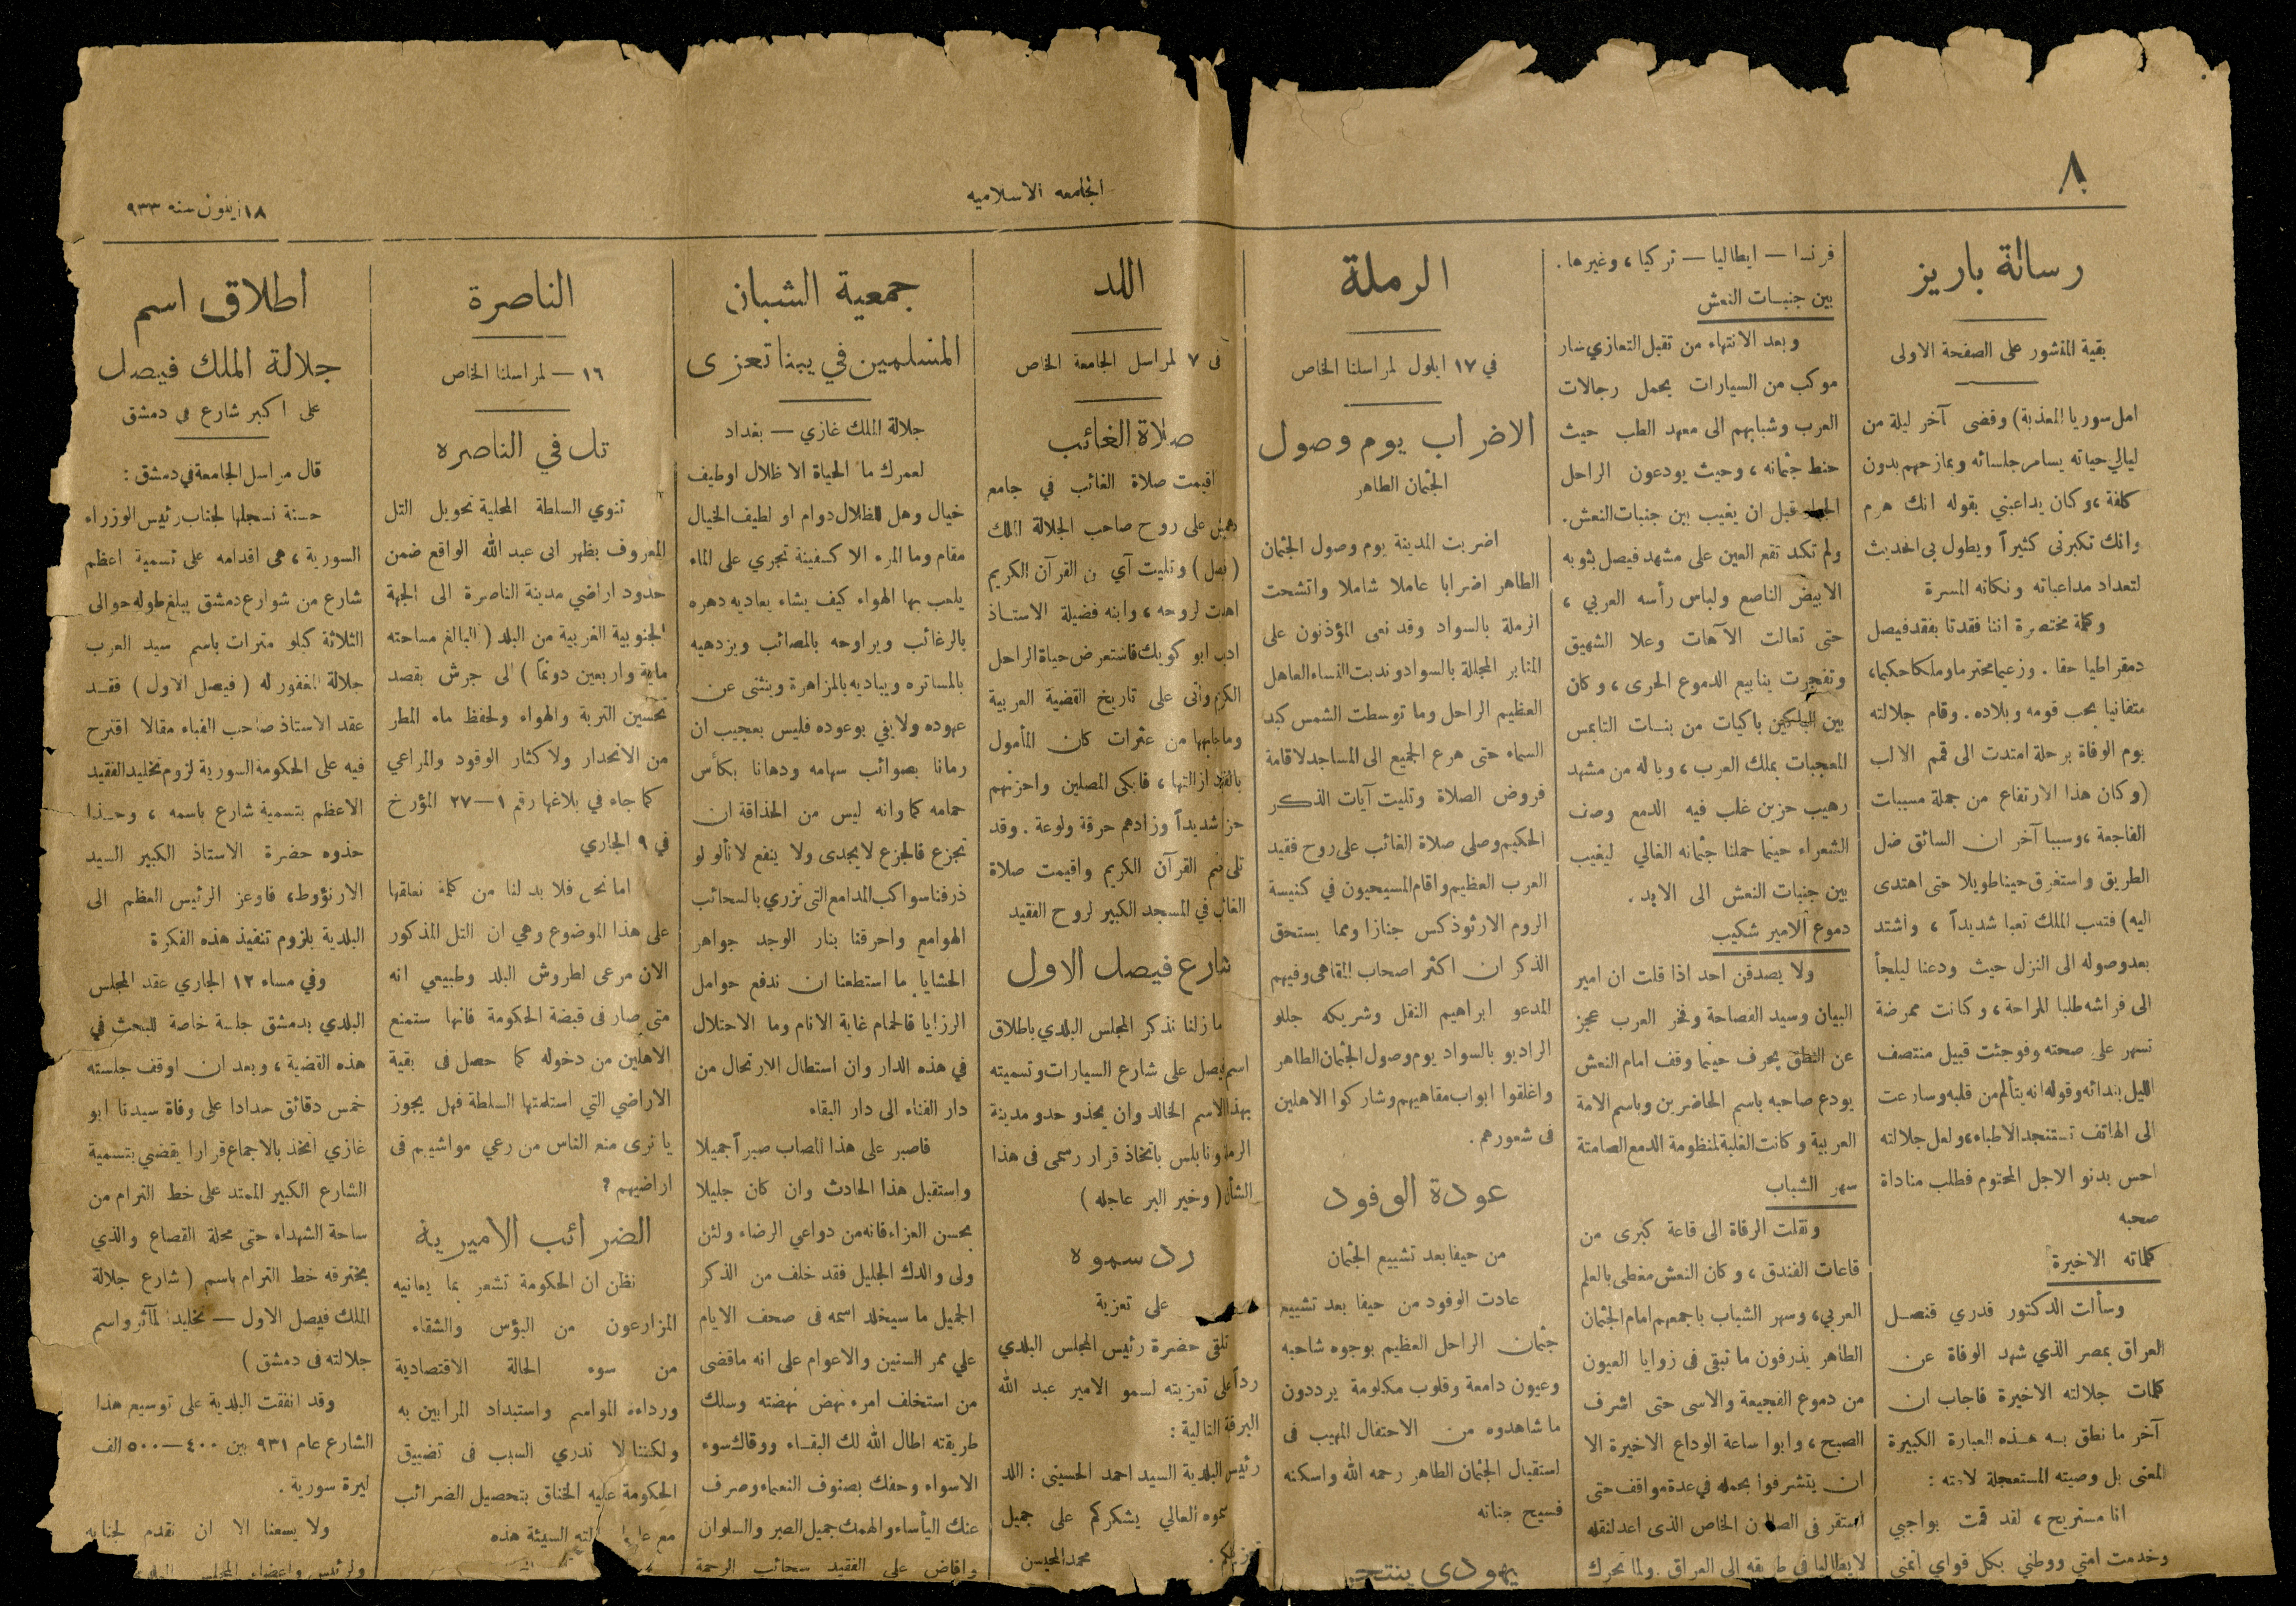 ٨
الجامعه الاسلاميه
١٨ ايلول سنه ٩٣٣
رسالة باريز
بقية المنشور على الصفحة الاولى
امل سوريا المعذبة) وقضى آخر ليلة من
ليالي حياته يسامر جلسائه ويمازحهم بدون
كلفة، وكان يداعبني بقوله انك هرم
وانك تكبرني كثيراً ويطول بي الحديث
لتعداد مداعباته ونكاته المسرة
وكلمة مختصرة اننا فقدنا بفقد فيصل
دمقراطيا حقا . وزعيما محترما وملكا حكيما،
متفانيا بحب قومه وبلاده . وقام جلالته
يوم الوفاة برحلة امتدت الى قمم الالب
(وكان هذا الارتفاع من جملة مسببات
الفاجعة، وسببا آخر ان السائق ضل
الطريق واستغرق حينا طويلا حتى اهتدى
اليه) فتعب الملك تعبا شديداً ، واشتد
بعد وصوله الى النزل حيث ودعنا ليلجأ
الى فراشه طلبا للراحة، وكانت ممرضة
تسهر على صحته وفوجئت قبيل منتصف
الليل بندائه وقوله انه يتألم من قلبه وسارعت
الى الهاتف تستنجد الاطباء، ولعل جلالته
احس بدنو الاجل المحتوم فطلب مناداة
صحبه
كلماته الاخيرة
وسألت الدكتور قدري قنصل
العراق بمصر الذي شهد الوفاة عن
كلمات جلالته الاخيرة فاجاب ان
آخر ما نطق به هذه العبارة الكبيرة
المعنى بل وصيته المستعجلة لامته :
انا مستريح، لقد قمت بواجبي
وخدمت امتي ووطني بكل قواي اتمنى
فرنسا — ايطاليا — تركيا، وغيرها .
بين جنبات النعش
وبعد الانتهاء من تقبل التعازي سار
موكب من السيارات يحمل رجالات
العرب وشبابهم الى معهد الطب حيث
حنط جثمانه، وحيث يودعون الراحل
قبل ان يغيب بين جنبات النعش.
ولم تكد تقع العين على مشهد فيصل بثوبه
الابيض الناصع ولباس رأسه العربي،
حتى تعالت الآهات وعلا الشهيق
وتفجرت ينابيع الدموع الحرى، وكان
بين الباكين باكيات من بنات التايمس
المعجبات بملك العرب، وياله من مشهد
رهيب حزين غلب فيه الدمع وصف
الشعراء حينما حملنا جثمانه الغالي ليغيب
بين جنبات النعش الى الابد .
دموع الامير شكيب
ولا يصدقن احد اذا قلت ان امير
البيان وسيد الفصاحة وفخر العرب عجز
عن النطق بحرف حينما وقف امام النعش
يودع صاحبه باسم الحاضرين وباسم الامة
العربية وكانت الغلبة لمنظومة الدمع الصامتة
سهر الشباب
ونقلت الرفاة الى قاعة كبرى من
قاعات الفندق، وكان النعش مغطى بالعلم
العربي، وسهر الشباب باجمعهم امام الجثمان
الطاهر يذرفون ما تبقى في زوايا العيون
من دموع الفجيعة والاسى حتى اشرف
الصبح، وابوا ساعة الوداع الاخيرة الا
ان يتشرفوا بحمله في عدة مواقف حتى
استقر في الخاص الذي اعد لنقله
لايطاليا في طريقه الى العراق . ولما تحرك
الرملة
في ١٧ ايلول لمراسلنا الخاص
الاضراب يوم وصول
الجثمان الطاهر
اضربت المدينة يوم وصول الجثمان
الطاهر اضرابا عاملا شاملا واتشحت
الرملة بالسواد وقد نعى المؤذنون على
المنابر المجللة بالسواد وندبت النساء العاهل
العظيم الراحل وما توسطت الشمس كبد
السماء حتى هرع الجميع الى المساجد لاقامة
فروض الصلاة وتليت آيات الذكر
الحكيم وصلى صلاة الغائب على روح فقيد
العرب العظيم واقام المسيحيون في كنيسة
الروم الارثوذكس جنازا ومما يستحق
الذكر ان اكثر اصحاب المقاهي وفيهم
المدعو ابراهيم النقل وشريكه جللو
الراديو بالسواد يوم وصول الجثمان الطاهر
واغلقوا ابواب مقاهيهم وشاركوا الاهلين
في شعورهم .
عودة الوفود
من حيفا بعد تشييع الجثمان
عادت الوفود من حيفا بعد تشييع
جثمان الراحل العظيم بوجوه شاحبه
وعيون دامعة وقلوب مكلومة يرددون
ما شاهدوه من الاحتفال المهيب في
استقبال الجثمان الطاهر رحمه الله واسكنه
فسيح جنانه
يهودي ينتحر
اللد
في ٧ لمراسل الجامعة الخاص
صلاة الغائب
اقيمت صلاة الغائب في جامع
على روح صاحب الجلالة الملك
وتليت آي القرآن الكريم
لروحه، وابنه فضيلة الاستاذ
ابو كويك فاستعرض حياة الراحل
وأتى على تاريخ القضية العربية
من عثرات كان المأمول
ازالتها، فابكى المصلين واحزنهم
شديداً وزادهم حرقة ولوعة . وقد
القرآن الكريم واقيمت صلاة
الغائب في المسجد الكبير لروح الفقيد
شارع فيصل الاول
ما زلنا نذكر المجلس البلدي باطلاق
اسم فيصل على شارع السيارات وتسميته
بهذا الاسم الخالد وان يحذو حدو مدينة
ونابلس باتخاذ قرار رسمى في هذا
الشأن (وخير البر عاجله)
رد سموه
على تعزية
تلقى حضرة رئيس المجلس البلدي
رداً على تعزيته لسمو الامير عبد الله
البرقة التالية :
رئيس البلدية السيد احمد الحسيني : اللد
سموه العالي يشكركم على جميل
محمد المحيسن
جمعية الشبان
المسلمين في يبنا تعزى
جلالة الملك غازي — بغداد
لعمرك ما الحياة الا ظلال اوطيف
خيال وهل للظلال دوام او لطيف الخيال
مقام وما المرء الا كسفينة تجري على الماء
يلعب بها الهواء كيف يشاء يعاديه دهره
بالرغائب ويراوحه بالمصائب ويزدهيه
بالمساتره ويباديه بالمزاهرة وينثنى عن
عهوده ولا يفي بوعوده فليس بعجيب ان
رمانا بصوائب سهامه ودهانا بكأس
حمامه كما وانه ليس من الحذاقة ان
نجزع فالجزع لا يجدى ولا ينفع لاننا لو
ذرفنا سواكب المدامع التى تزري بالسحائب
الهوامع واحرقنا بنار الوجد جواهر
الحشايا ما استطعنا ان ندفع حوامل
الرزايا فالحمام غاية الانام وما الاحتلال
في هذه الدار وان استطال الارتحال من
دار الفناء الى دار البقاء
فاصبر على هذا المصاب صبراً جميلا
واستقبل هذا الحادث وان كان جليلا
بحسن العزاء فانه من دواعي الرضاء ولئن
ولى والدك الجليل فقد خلف من الذكر
الجميل ما سيخلد اسمه في صحف الايام
علي ممر السنين والاعوام على انه ما قضى
من استخلف امرء نهض نهضته وسلك
طريقته اطال الله لك البقاء ووقاك سوء
الاسواء وحفك بصنوف النعماء وصرف
عنك البأساء والهمك جميل الصبر والسلوان
وافاض على الفقيد سحائب الرحمة
الناصرة
١٦ — لمراسلنا الخاص
تل في الناصره
تنوي السلطة المحلية تحويل التل
المعروف بظهر ابى عبد الله الواقع ضمن
حدود اراضي مدينة الناصرة الى الجهة
الجنوبية الغربية من البلد (البالغ مساحته
ماية واربعين دونماً) الى حرش بقصد
تحسين التربة والهواء ولحفظ ماء المطر
من الانحدار ولاكثار الوقود والمراعي
كما جاء في بلاغها رقم ١—٢٧ المؤرخ
في ٩ الجاري
اما نحن فلا بد لنا من كلمة نعلقها
على هذا الموضوع وهي ان التل المذكور
الان مرعى لطروش البلد وطبيعي انه
متى صار في قبضة الحكومة فانها ستمنع
الاهلين من دخوله كما حصل في بقية
الاراضي التي استلمتها السلطة فهل يجوز
يا ترى منع الناس من رعي مواشيهم في
اراضيهم ؟
الضرائب الاميرية
نظن ان الحكومة تشعر بما يعانيه
المزارعون من البؤس والشقاء
من سوء الحالة الاقتصادية
ورداءة المواسم واستبداد المرابين به
ولكننا لا ندري السبب في تضييق
الحكومة عليه الخناق بتحصيل الضرائب
السيئة هذه
اطلاق اسم
جلالة الملك فيصل
على اكبر شارع في دمشق
قال مراسل الجامعة في دمشق :
حسنة نسجلها لجناب رئيس الوزراء
السورية، هى اقدامه على تسمية اعظم
شارع من شوارع دمشق يبلغ طوله حوالى
الثلاثة كيلو مترات باسم سيد العرب
جلالة المغفور له (فيصل الاول) فقد
عقد الاستاذ صاحب القباء مقالا اقترح
فيه على الحكومة السورية لزوم تخليد الفقيد
الاعظم بتسمية شارع باسمه، وحذا
حذوه حضرة الاستاذ الكبير السيد
الارنؤوط، فاوعز الرئيس العظم الى
البلدية بلزوم تنفيذ هذه الفكرة
وفي مساء ١٢ الجاري عقد المجلس
البلدي بدمشق جلسة خاصة للبحث في
هذه القضية، وبعد ان اوقف جلسته
خمس دقائق حدادا على وفاة سيدنا ابو
غازي اتخذ بالاجماع قرارا يقضي بتسمية
الشارع الكبير الممتد على خط الترام من
ساحة الشهداء حتى محلة القصاع والذي
يخترقه خط الترام باسم (شارع جلالة
الملك فيصل الاول — تخليدا لمآثر واسم
جلالته في دمشق)
وقد انفقت البلدية على توسيع هذا
الشارع عام ٩٣١ بين ٤٠٠—٥٠٠ الف
ليرة سورية .
ولا يسعنا الا ان نقدم لجنابه
ولرئيس واعضاء المجلس